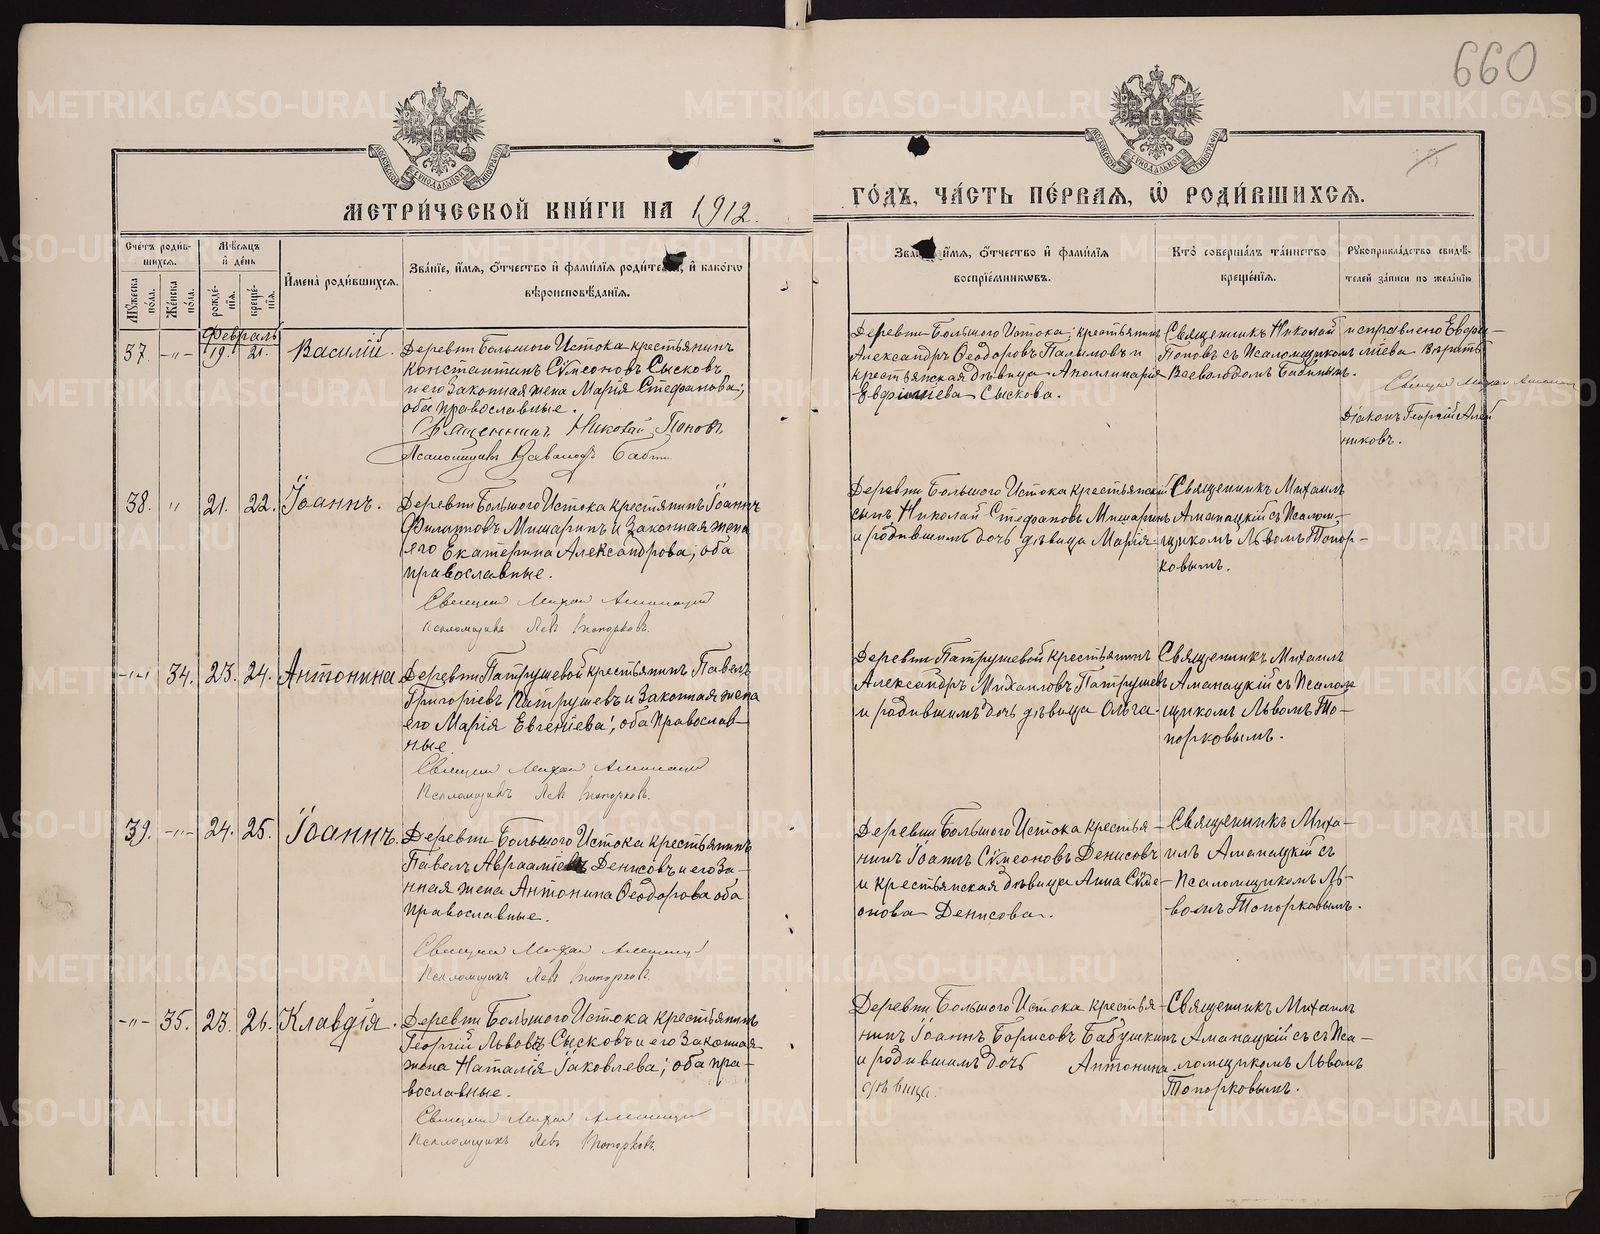 660
МЕТРИ́ЧЕСКОЙ КНИ́ГИ НА 1912.
ГО́ДЪ, ЧА́СТЬ ПЕ́РВАЯ, Ѡ РОДИ́ВШИХСЯ.
Сче́тъ роди́в-
шихся.
Мѣ́сяцъ
и де́нь
Мꙋ́жеска
по́ла.
Же́нска
по́ла.
рожде́-
нія.
креще́-
нія.
Имена̀ роди́вшихся.
Зва́ніе, и́мя, о́тчество и фами́лія роди́телей, и како́гѡ
вѣроисповѣ́данія.
Зва́ніе, и́мя, о́тчество и фами́лія
воспріе́мникѡвъ.
Кто̀ соверша́лъ та́инство
креще́нія.
Рꙋкоприкла́дство свидѣ́-
телей за́писи по жела́нію
Февраль
37. -"- 19. 21. Василій.
Деревни Большого Истока крестьянинъ
Константинъ Сѵмеоновъ Сысковъ
и его законная жена Марія Стефанова;
оба православные.
Священникъ Николай Поповъ
Псаломщикъ Всеволодъ Бабин
Деревни Большого Истока; крестьянинъ
Александръ Ѳеодоровъ Палымовъ и
крестьянская дѣвица Аполлинарія
Евфиміева Сыскова.
Священникъ Николай
Поповъ съ Псаломщикомъ
Всеволодомъ Бабинымъ.
исправлено Евфи-
міева вѣрить
Священ Михаил Аманац
Діаконъ Георгій Алей
никовъ.
38. " 21. 22. Іоаннъ.
Деревни Большого Истока крестьянинъ Іоаннъ
Филатовъ Мишаринъ и законная жена
его Екатерина Александрова; оба
православные.
Священ Михаил Аманацкій
Псаломщикъ Левъ Топорковъ.
Деревни Большого Истока крестьянскій
сынъ Николай Стефановъ Мишаринъ
и родившимъ дочь дѣвица Марія.
Священникъ Михаилъ
Аманацкій съ Псалом-
щикомъ Львомъ Топор-
ковымъ.
-"- 34. 23. 24. Антонина
Деревни Патрушевой крестьянинъ Павелъ
Григоріевъ Патрушевъ и законная жена
его Марія Евгеніева; оба православ-
ные.
Священ Михаил Аманацкій
Псаломщикъ Левъ Топорковъ.
Деревни Патрушевой крестьянинъ
Александръ Михаиловъ Патрушевъ
и родившимъ дочь дѣвица Ольга.
Священникъ Михаилъ
Аманацкій съ Псалом
щикомъ Львомъ То-
порковымъ.
39. -"- 24. 25. Іоаннъ.
Деревни Большого Истока крестьянинъ
Павелъ Авраамiевъ Денисовъ и его за-
нная жена Антонина Ѳеодорова оба
православные.
Священ Михаил Аманацкій
Псаломщикъ Левъ Топорковъ.
Деревни Большого Истока крестья-
нинъ Іоаннъ Сѵмеоновъ Денисовъ
и крестьянская дѣвица Анна Сѵме-
онова Денисова.
Священникъ Миха-
илъ Аманацкій съ
Псаломщикомъ Ль-
вомъ Топорковымъ.
-"- 35. 23. 26. Клавдія.
Деревни Большого Истока крестьянинъ
Георгій Львовъ Сысковъ и его законная
жена Наталія Іаковлева; оба пра-
вославные.
Священ Михаил Аманацкій
Псаломщикъ Левъ Топорковъ.
Деревни Большого Истока крестья-
нинъ Іоаннъ Борисовъ Бабушкинъ
и родившимъ дочь Антонина.
дѣвица.
Священникъ Михаилъ
Аманацкій съ съ Пса-
ломщикомъ Львомъ
Топорковымъ.